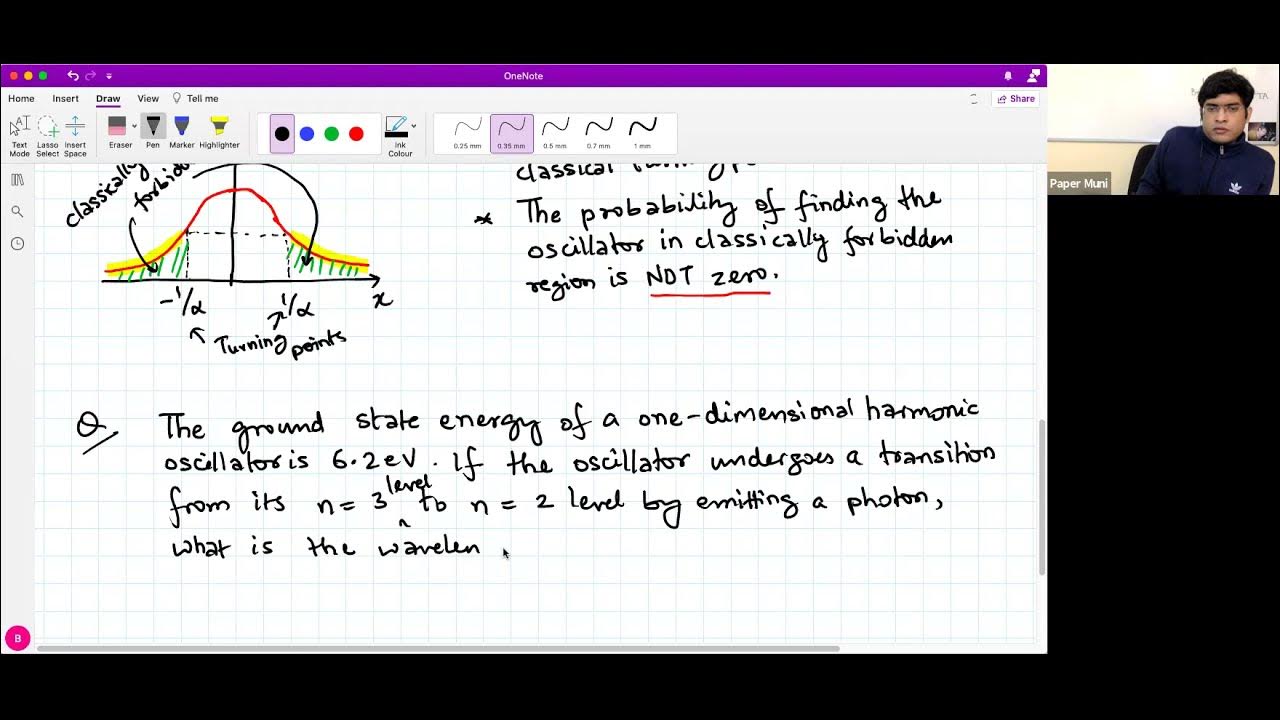 OneNote
Home Insert Draw View Tell me
Share
Text Mode
Lasso Select
Insert Space
Eraser
Pen
Marker
Highlighter
Ink Colour
0.25 mm
0.35 mm
0.5 mm
0.7 mm
1 mm
Paper Muni
classically
-1/α
1/α
x
Turning points
classical
* The probability of finding the
oscillator in classically forbidden
region is NOT zero.
Q. The ground state energy of a one-dimensional harmonic
oscillator is 6.2 eV. If the oscillator undergoes a transition
from its n = 3 level to n = 2 level by emitting a photon,
what is the wavelen
B